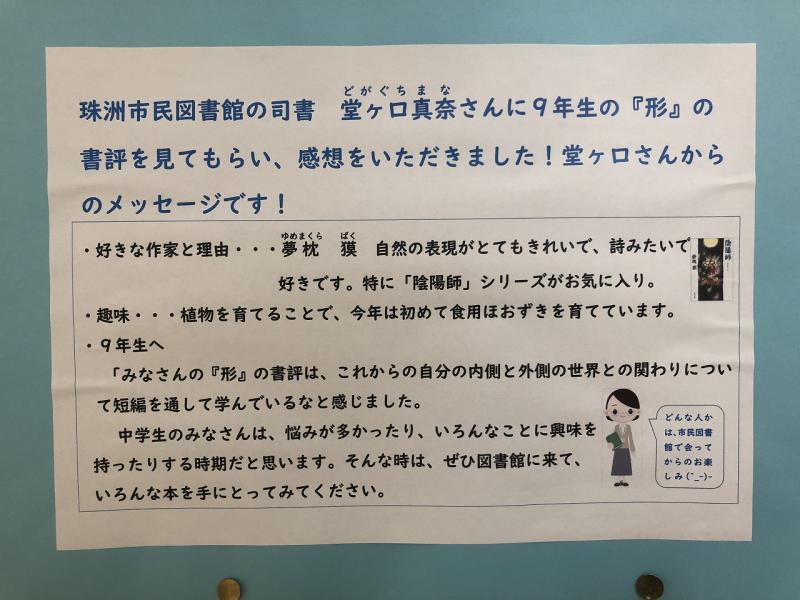 どがぐちまな
珠洲市民図書館の司書　堂ヶ口真奈さんに９年生の『形』の
書評を見てもらい、感想をいただきました！堂ヶ口さんから
のメッセージです！
ゆめまくら　ばく
・好きな作家と理由・・・夢枕　獏　自然の表現がとてもきれいで、詩みたいで
好きです。特に「陰陽師」シリーズがお気に入り。
陰陽師
夢枕獏
・趣味・・・植物を育てることで、今年は初めて食用ほおずきを育てています。
・９年生へ
「みなさんの『形』の書評は、これからの自分の内側と外側の世界との関わりについ
て短編を通して学んでいるなと感じました。
中学生のみなさんは、悩みが多かったり、いろんなことに興味を
持ったりする時期だと思います。そんな時は、ぜひ図書館に来て、
いろんな本を手にとってみてください。
どんな人か
は、市民図書
館で会って
からのお楽
しみ(^_-)-